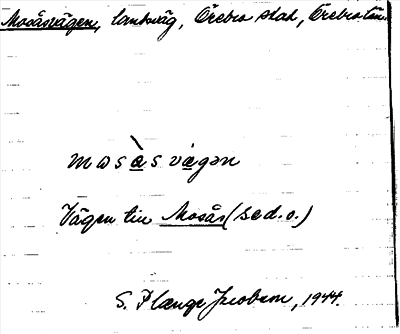 Mosåsvägen, landsväg, Örebro stad, Örebro län.
mωsὰsvägən
Vägen till Mosås (se d.o.)
S. Plange Jacobson, 1944.